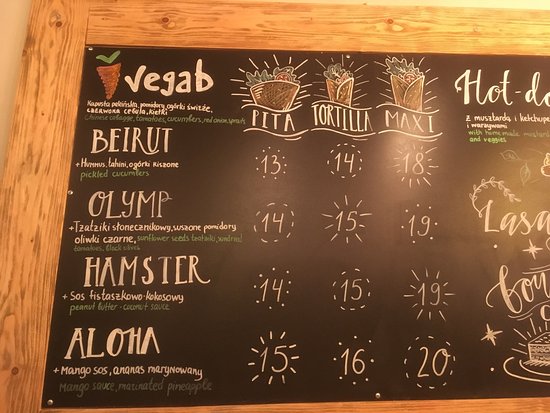 vegab
Kapusta pekińska, pomidory, ogórki świeże,
czerwona cebula, kiełki
Chinese cabagge, tomatoes, cucumbers, red onion, sprouts
PITA TORTILLA MAXI
BEIRUT 13 14 18
+ Hummus, tahini, ogórki kiszone
pickled cucumbers
OLYMP 14 15 19
+ Tzatziki słonecznikowy, suszone pomidory
oliwki czarne, sunflower seeds tzatziki, sundried
tomatoes, black olives
HAMSTER 14 15 19
+ Sos fistaszkowo-kokosowy
peanut butter - coconut sauce
ALOHA 15 16 20
+ Mango sos, ananas marynowany
Mango sauce, marinated pineapple
Hot-do
z musztardą i ketchupe
i warzywami
with homemade mustard
and veggies
Lasa